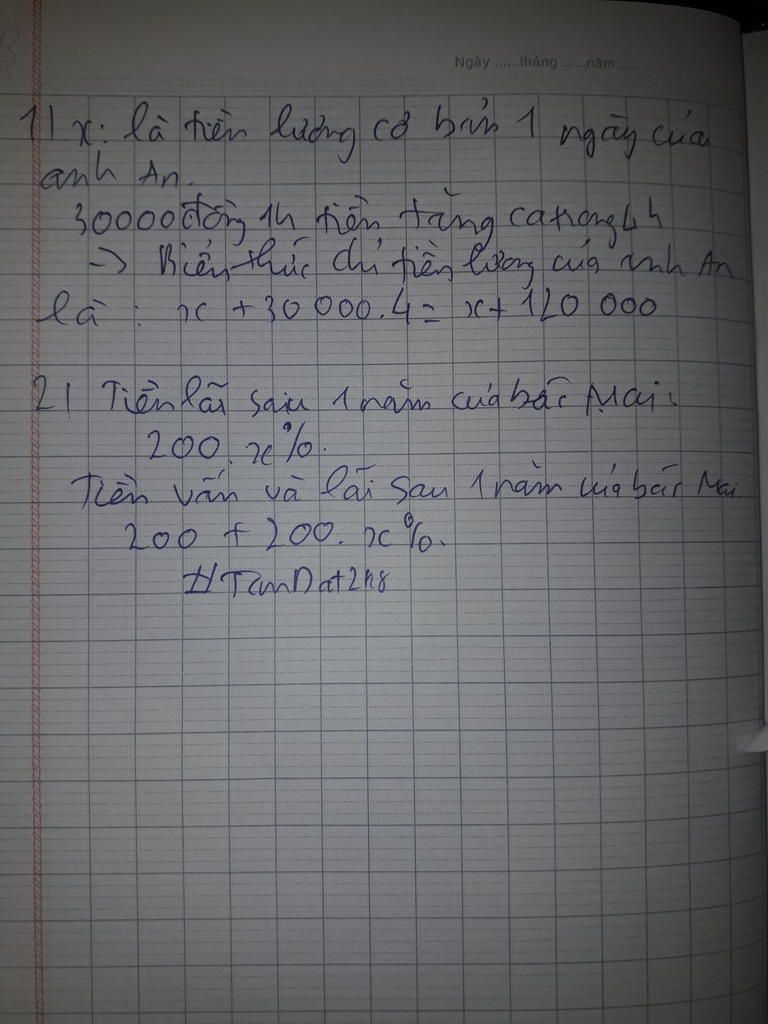 Ngày ......tháng ......năm......
1) x: là tiền lương cơ bản 1 ngày của
anh An.
30000đồng 1h tiền tăng ca trong 4h
-> Biểu thức chỉ tiền lương của anh An
là : x + 30 000.4 = x + 120 000
2) Tiền lãi sau 1 năm của bác Mai:
200.x%.
Tiền vốn và lãi sau 1 năm của bác Mai.
200 + 200.x%.
#TanDat2k8